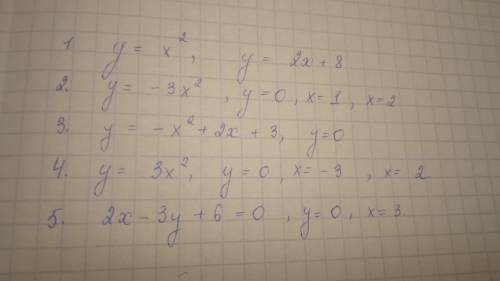 1. y = x², y = 2x + 8
2. y = -3x², y = 0, x = 1, x = 2
3. y = -x² + 2x + 3, y = 0
4. y = 3x², y = 0, x = -3, x = 2
5. 2x - 3y + 6 = 0, y = 0, x = 3.